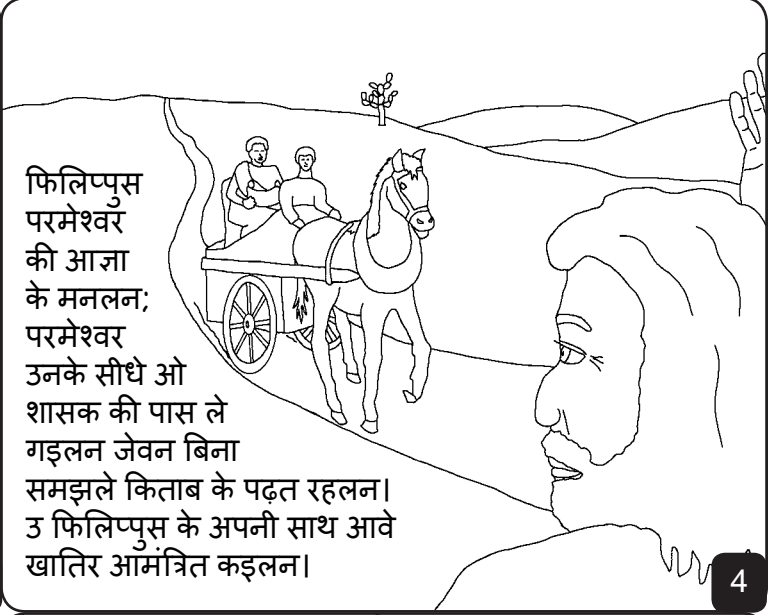 फिलिप्पुस
परमेश्वर
की आज्ञा
के मनलन;
परमेश्वर
उनके सीधे ओ
शासक की पास ले
गइलन जेवन बिना
समझले किताब के पढ़त रहलन।
उ फिलिप्पुस के अपनी साथ आवे
खातिर आमंत्रित कइलन।
4